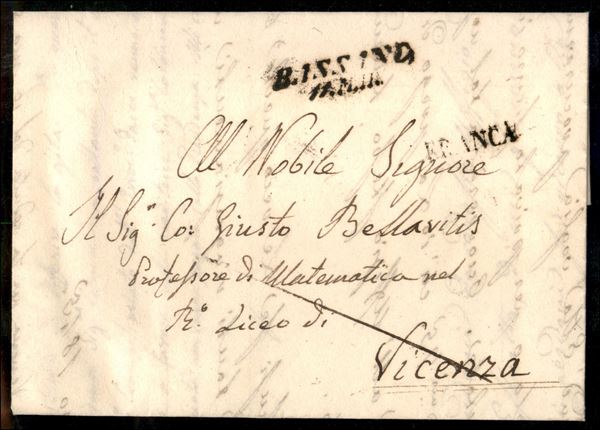 BASSANO
FRANCA
Al Nobile Signore
Il Sig.r Co: Giusto Bellavitis
Professore di Matematica nel
R.o Liceo di
Vicenza